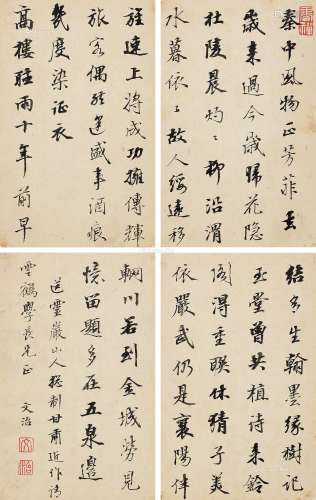 秦中風物正芳菲去
歲來過今歲歸花隱
杜陵晨灼〻柳沿渭
水暮依〻故人綏遠移
旌速上將成功擁傳輝
旅客偶經逢盛事酒痕
幾度染征衣
高樓聽雨十年前早
結多生翰墨緣樹記
玉堂曾共植詩來鈴
閣得重聯休猜子美
依嚴武仍是襄陽伴
輞川若到金城勞見
憶留題多在五泉邊
送靈巖山人移制甘肅近作請
雲鶴學長兄正 文治